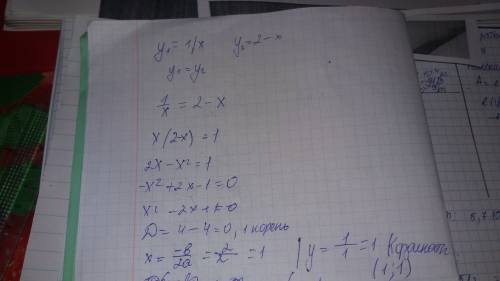 y₁ = 1/x y₂ = 2-x
y₁ = y₂
1/x = 2-x
x(2-x) = 1
2x-x² = 1
-x²+2x-1=0
x²-2x+1=0
D = 4-4=0, 1 корень
x = -в/2a = 2/2 = 1 | y = 1/1 = 1 Координаты
(1; 1)